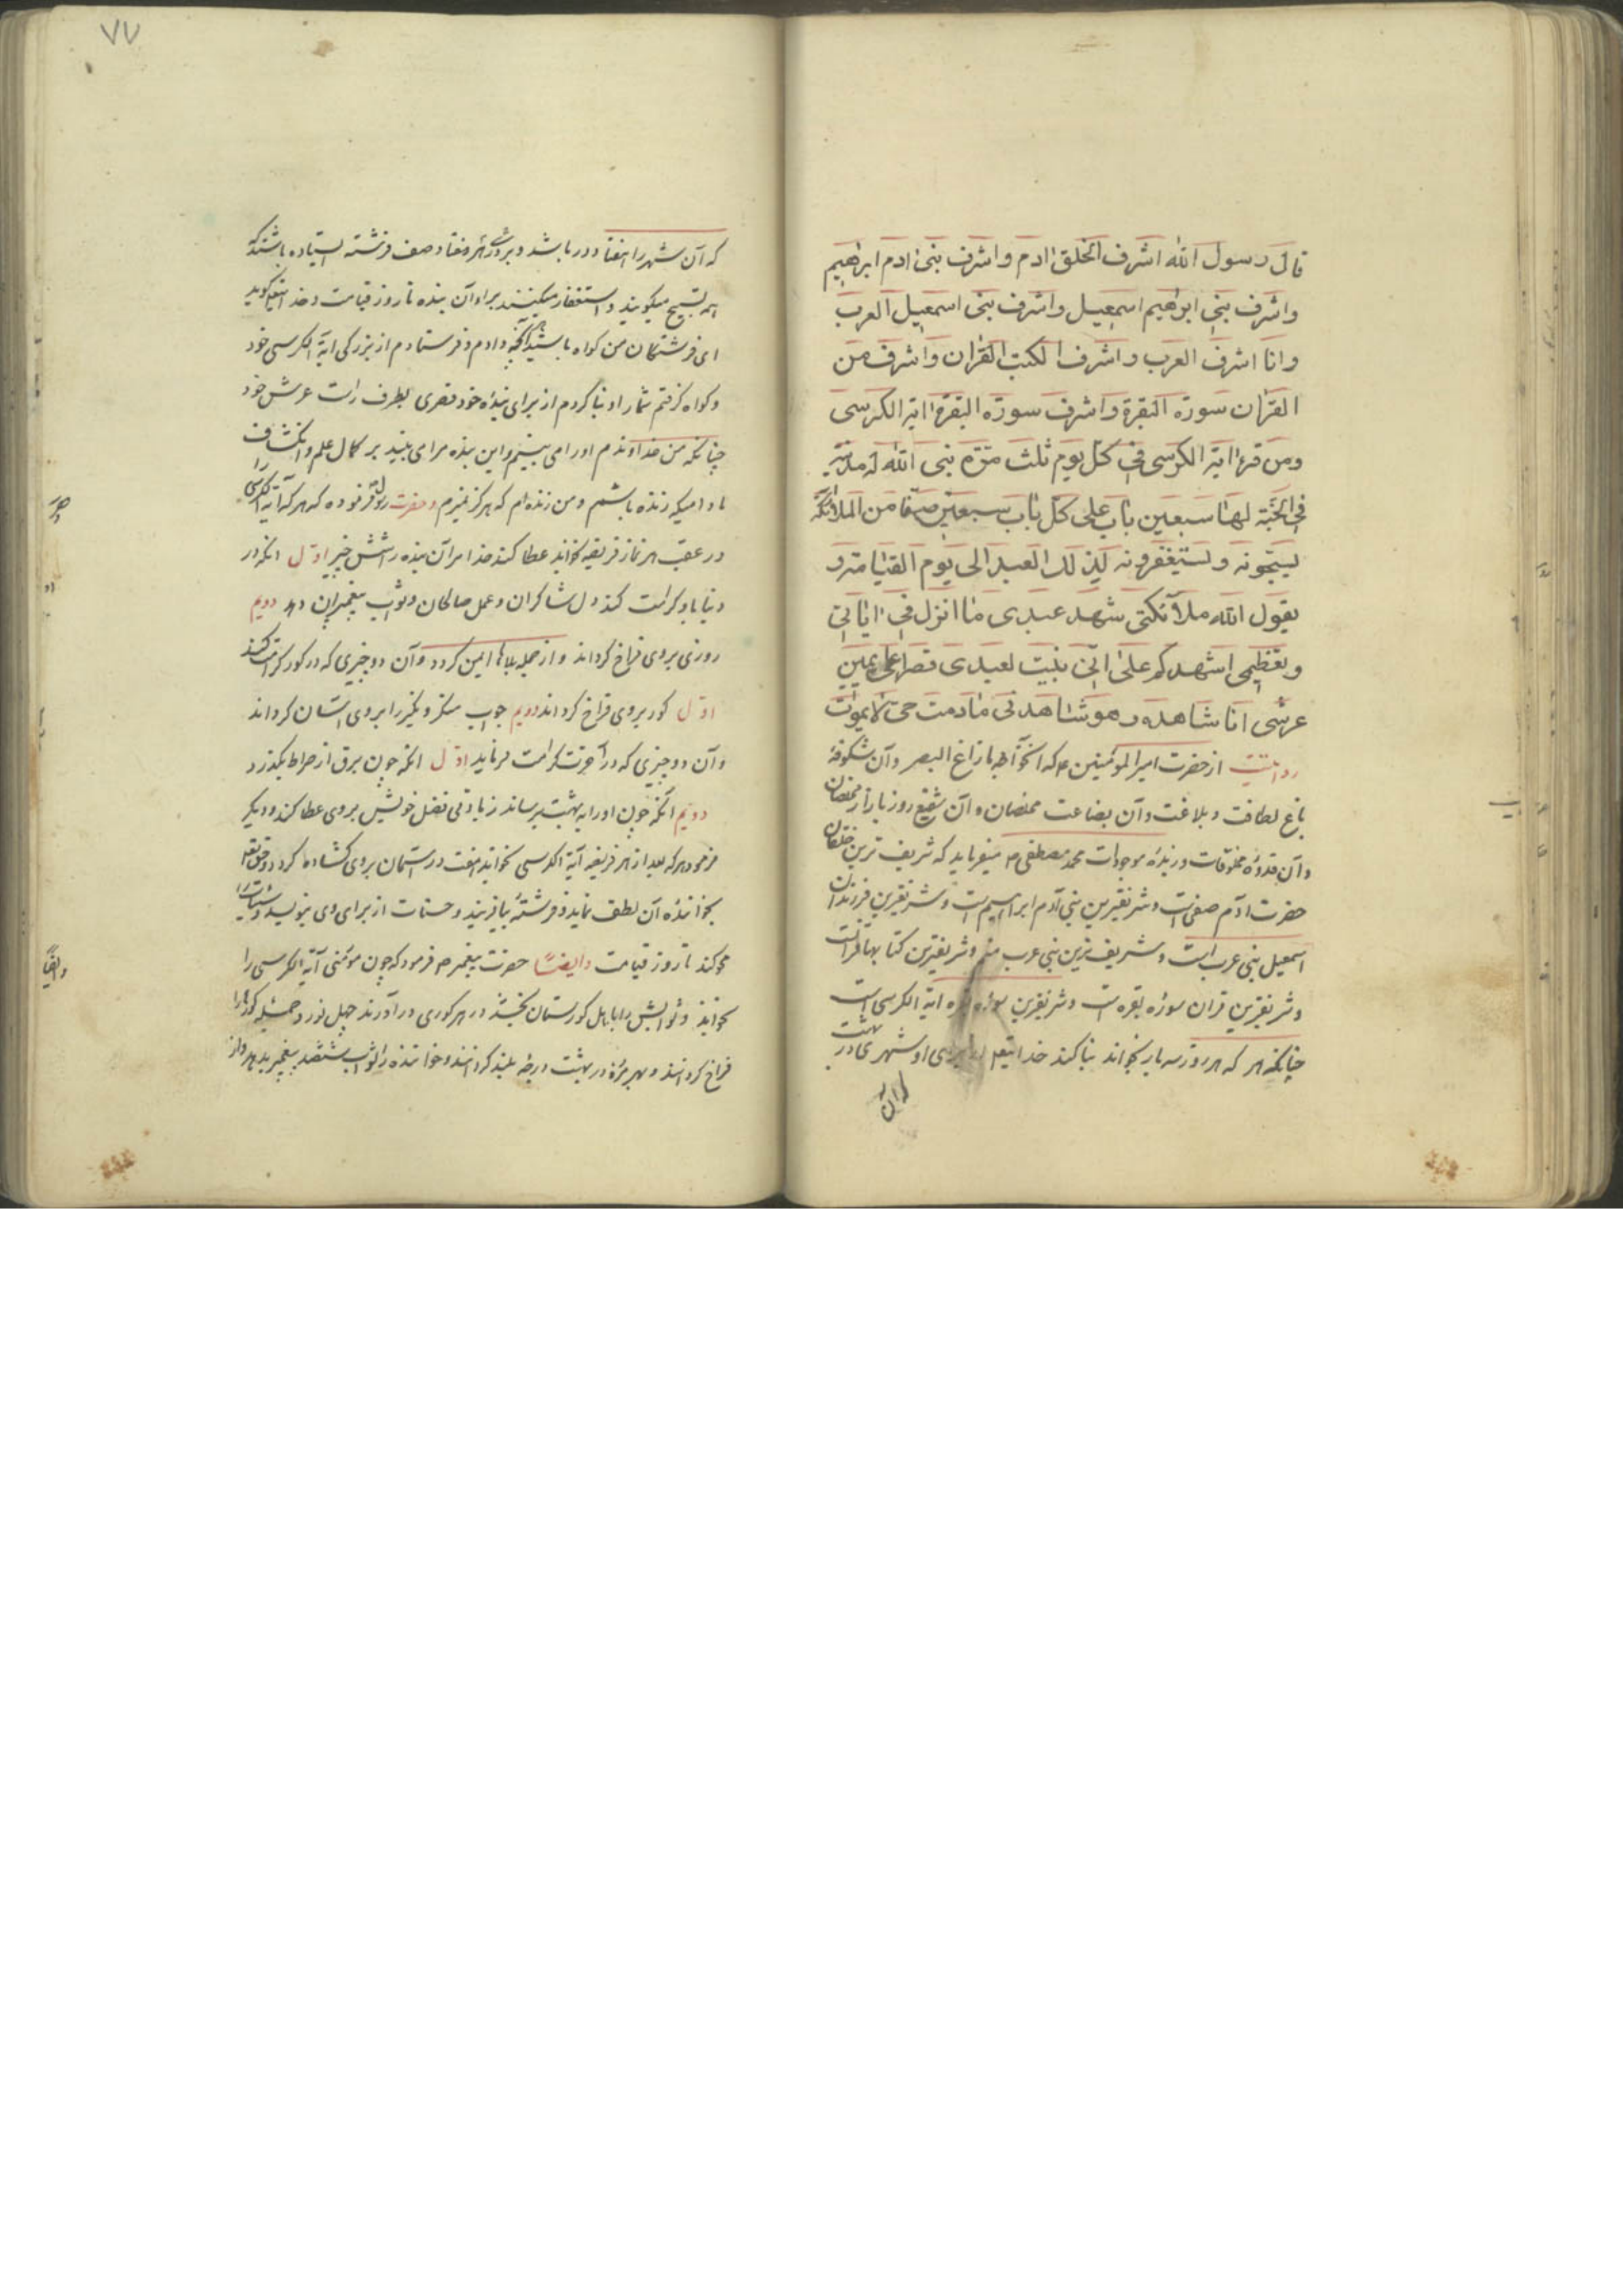 قال رسول الله اشرف الخلق ادم واشرف بنی ادم ابرهیم
واشرف بنی ابرهیم اسمعیل واشرف بنی اسمعیل العرب
وانا اشرف العرب واشرف الکتب القران واشرف من
القران سورة البقرة واشرف سورة البقرة ایة الکرسی
ومن قرء ایة الکرسی فی کل یوم ثلث مرة بنی الله له مدینة
فی الجنة لها سبعین باب علی کل باب سبعین صفا من الملائکة
یسبحونه ولستیغفرونه لذلک العبد الی یوم القیامة و
یقول الله ملآئکتی شهد عبدی ما انزل فی ایاتی
وبعظیمی اشهدکم علی انی بنیت لعبدی قصرا علی یمین
عرشی انا شاهده وهو شاهدنی مادمت حی لایموت
روایتست از حضرت امیر المومنین ع که آنخواجه مازاغ البصر وآن شکوفهٔ
باغ لطافت و بلاغت وآن بضاعت مخلصان وآن شفیع روز بازار مخلصان
وآن قدوهٔ مخلوقات وزبدهٔ موجودات محمد مصطفی ص میفرماید که شریف ترین خلقان
حضرت آدم صفیست وشریفترین بنی آدم ابراهیم است وشریفترین فرزندان
اسمعیل بنی عرب است وشریف ترین بنی عرب منم وشریفترین کتابها قرانست
وشریفترین قران سوره بقره است وشریفترین سوره بقره ایة الکرسی است
چنانکه هر که هر روز سه بار بخواند بنا کند خدایتعالی از برای او شهری در بهشت
که آن
۷۷
که آن شهر را هفتاد در باشد و بر در هر هفتاد صف فرشته استاده باشند که
همه تسبیح میکویند واستغفار میکنند براء آن بنده تا روز قیامت وخدایتعالی کوید
ای فرشتکان من کواه باشید آنچه دادم وفرستادم از بزرکی ایة الکرسی خود
وکواه کرفتم شمارا وبنا کردم از برای بندهٔ خود قصری بطرف راست عرش خود
چنانکه من خداوندم اورا می بینم واین بنده مرا می بیند بر کمال علم وانکشاف
مادامیکه زنده باشم ومن زنده ام که هرکز نمیرم وحضرت رسول فرموده که هر که آیة الکرسی را
در عقب هر نماز فریضه بخواند عطا کند خدا مر آن بنده را شش چیز اول آنکه در
دنیا باو کرامت کند دل شاکران وعمل صالحان وثواب پیغمبران دهد دویم
روزی بروی فراخ کرداند واز جمله بلاها ایمن کردد وآن دو چیزی که در کور کرامت کند
اول کور بروی فراخ کرداند دویم جواب منکر ونکیر را بروی آسان کرداند
وآن دو چیزی که در آخرت کرامت فرماید اول آنکه چون برق از صراط بکذرد
دویم آنکه چون اورا به بهشت برساند زیادتی فضل خویش بروی عطا کند ودیکر
فرمود هر که بعد از هر فریضه آیة الکرسی بخواند هفت در آسمان بروی کشاده کردد وحق تعالی
بخوانندهٔ آن لطف نماید وفرشتهٔ بیافریند وحسنات از برای وی بنویسد وسیئات را
محو کند تا روز قیامت وایضاً حضرت پیغمبر ص فرمود که چون مؤمنی آیة الکرسی را
بخواند وثوابش را باهل کورستان بخشد در هر کوری در آورند چهل نور وجمیله کورها را
فراخ کردانند وبهر مرده در بهشت درجه بلند کردانند وخواننده را ثواب شصد پیغمبر بدهد واز
وایضاً